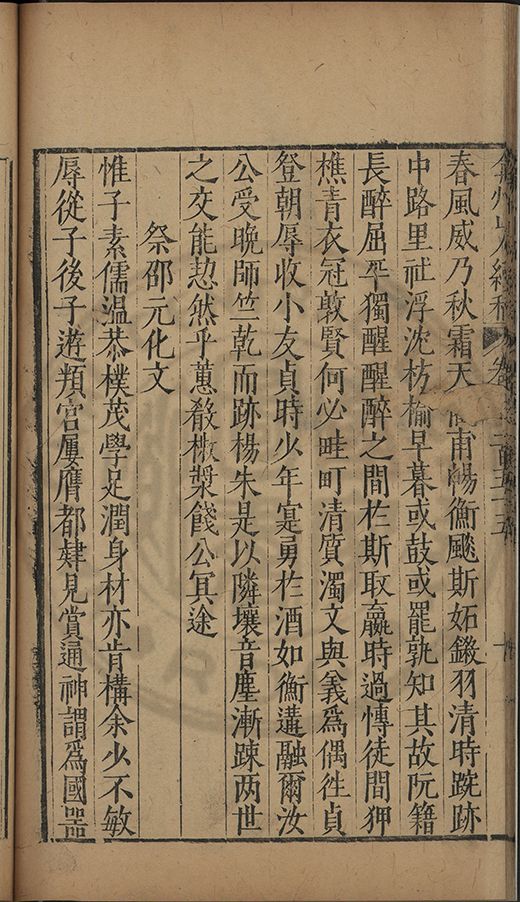 春風威乃秋霜天甫暢衡飇斯妬鎩羽清時跣跡
中路里社浮沈枌榆早暮或鼓或罷孰知其故阮籍
長醉屈平獨醒醒醉之間於斯取羸時過慱徒間狎
樵青衣冠敦賢何必畦町清質濁文與義為偶徃貞
登朝辱收小友貞時少年寔勇於酒如衡遘融爾汝
公受晩師竺乾而跡楊朱是以隣壤音塵漸踈两世
之交能恝然乎蕙殽椒漿餞公冥途
祭邵元化文
惟子素儒温恭樸茂學足潤身材亦肯構余少不敏
辱從子後子遊頖宫屢膺都肄見賞通神謂為國噐